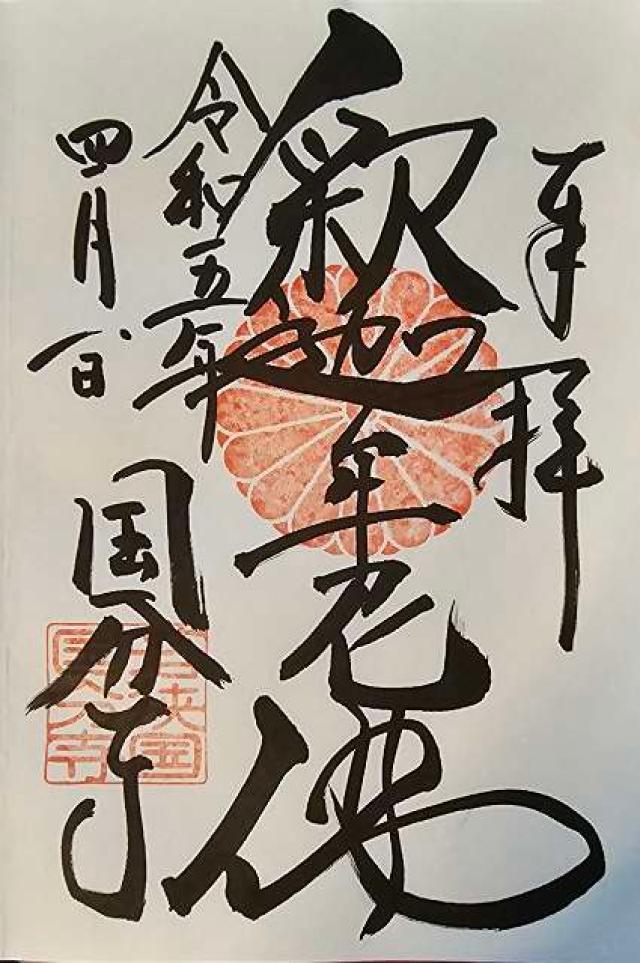 奉拝
釈迦牟尼佛
令和五年
四月一日
国分寺